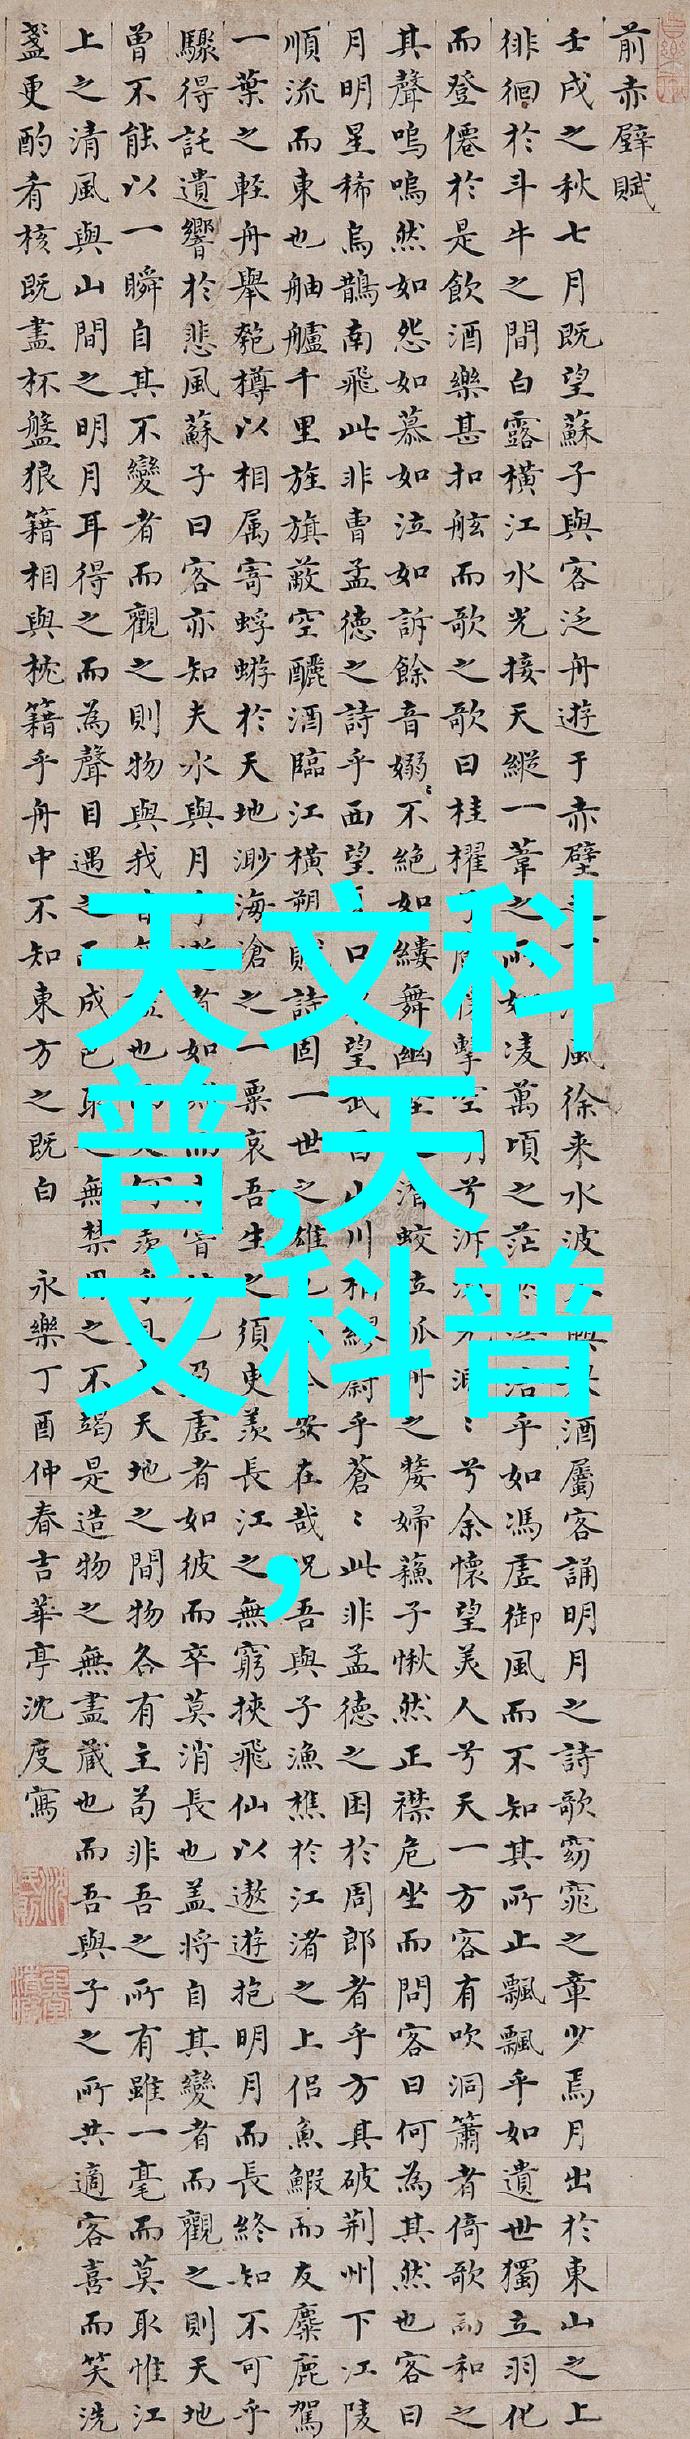 前赤壁賦
壬戌之秋七月既望蘇子與客泛舟遊于赤壁風徐来水波酒屬客誦明月之詩歌窈窕之章少焉月出於東山之上
徘徊於斗牛之間白露橫江水光接天縱一葦之所如凌萬頃之茫浩乎如馮虛御風而不知其所止飄飄乎如遺世獨立羽化
而登僊於是飲酒樂甚扣舷而歌之歌曰桂櫂兮擊空明兮泝〻兮余懷望美人兮天一方客有吹洞簫者倚歌而和之
其聲嗚嗚然如怨如慕如泣如訴餘音嫋〻不絕如縷舞幽潛蛟泣孤舟之嫠婦蘇子愀然正襟危坐而問客曰何為其然也客曰
月明星稀烏鵲南飛此非曹孟德之詩乎西望口望武山川相繆乎蒼〻此非孟德之困於周郎者乎方其破荊州下江陵
順流而東也舳艫千里旌旗蔽空釃酒臨江橫槊賦詩固一世之雄安在哉況吾與子漁樵於江渚之上侶魚鰕而友麋鹿駕
一葉之輕舟舉匏樽以相属寄蜉蝣於天地渺海滄之一粟哀吾生之須臾羨長江之無窮挾飛仙以遨遊抱明月而長終知不可乎
驟得託遺響於悲風蘇子曰客亦知夫水與月乎者如虛者如彼而卒莫消長也盖将自其變者而觀之則天地
曾不能以一瞬自其不變者而觀之則物與我也何羨乎天地之間物各有主苟非吾之所有雖一毫而莫取惟江
上之清風與山間之明月耳得之而為聲目遇之而成色取無禁用之不竭是造物之無盡藏也而吾與子之所共適客喜而笑洗
盞更酌肴核既盡杯盤狼籍相與枕籍乎舟中不知東方之既白 永樂丁酉仲春吉華亭沈度寫
天文科
普,天
文科普
,